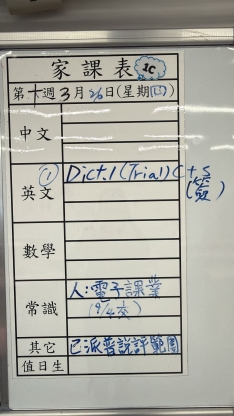 家課表 1C
第十週3月26日(星期四)
中文
英文 ① Dict.1 (Trial) C+S
(簽)
數學
常識 人:電子課業
(9/4交)
其它 已派普說評範圍
值日生